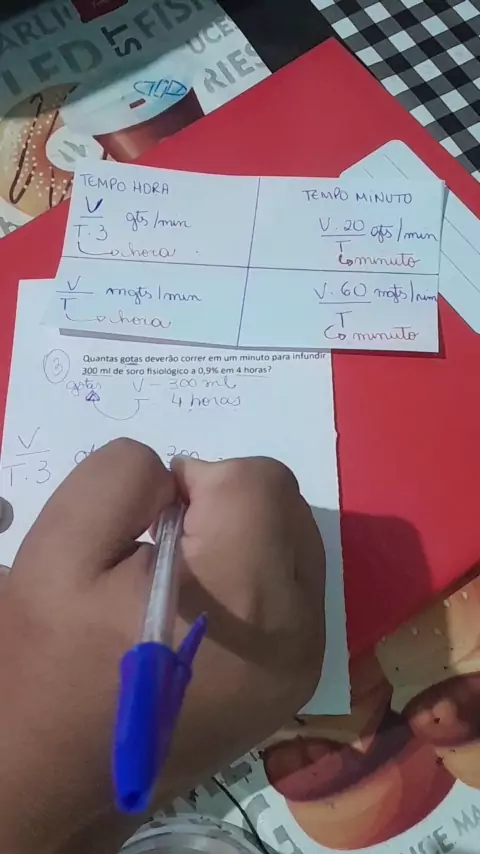 ARLI
LED
ST
FISH
UCE
RIES
TEMPO HORA
V
T.3 gts/min
hora
TEMPO MINUTO
V.20 gts/min
T
minuto
V mgts/min
T
hora
V.60 mgts/min
T
minuto
3
Quantas gotas deverão correr em um minuto para infundir
300 ml de soro fisiológico a 0,9% em 4 horas?
gotas V - 300 ml
T - 4 horas
V
T.3
300